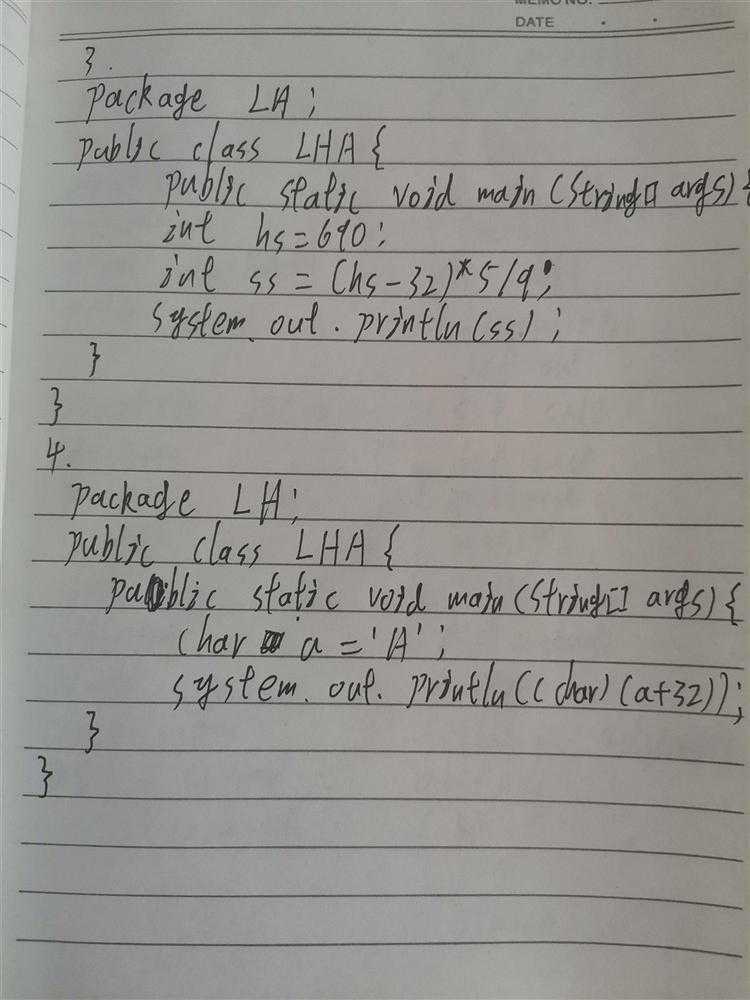 MEMO NO.
DATE . .
3.
package LA;
public class LHA{
public static void main(String[] args){
int hs=690;
int ss = (hs-32)*5/9;
system.out.println(ss);
}
}
4.
package LH;
public class LHA{
public static void main(String[] args){
char a='A';
system.out.println((char)(a+32));
}
}